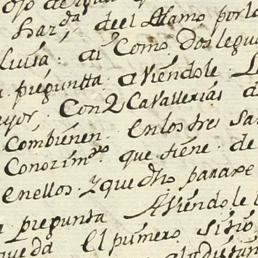 ojo de
haz.da de el Alamo por lo
Luisa: a Como dos legu
a preguntta aviendole L
ayor, Con 2 Cavallerias d
Combienen en los tres sa
Conozim.to que tiene de
enellos. y que dho parare
a pregunta Aviendole l
queda El primero sitio